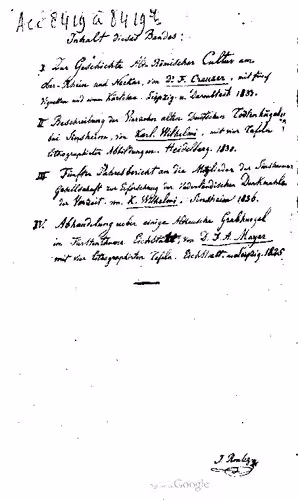 Acc 8419 à 8419
Inhalt dieses Bandes:
I Zur Geschichte Alt-Römischer Cultur am
Ober-Rhein und Neckar, von Dr. F. Creuzer, mit fünf
Vignetten und einem Kärtchen. Leipzig u. Darmstadt 1833.
II Beschreibung der Vierzehn alten Deutschen Todtenhügel
bei Sinsheim, von Karl Wilhelmi, mit vier Tafeln
lithographirter Abbildungen. Heidelberg. 1830.
III Fünfter Jahresbericht an die Mitglieder der Sinsheimer
Gesellschaft zur Erforschung der Vaterländischen Denkmahle
der Vorzeit. von K. Wilhelmi. Sinsheim 1836.
IV. Abhandlung ueber einige Altdeutsche Grabhügel
im Fürstenthume Eichstätt, von D. F. A. Mayer
mit vier lithographirten Tafeln. Eichstatt. 1825
J. Roulez
Google